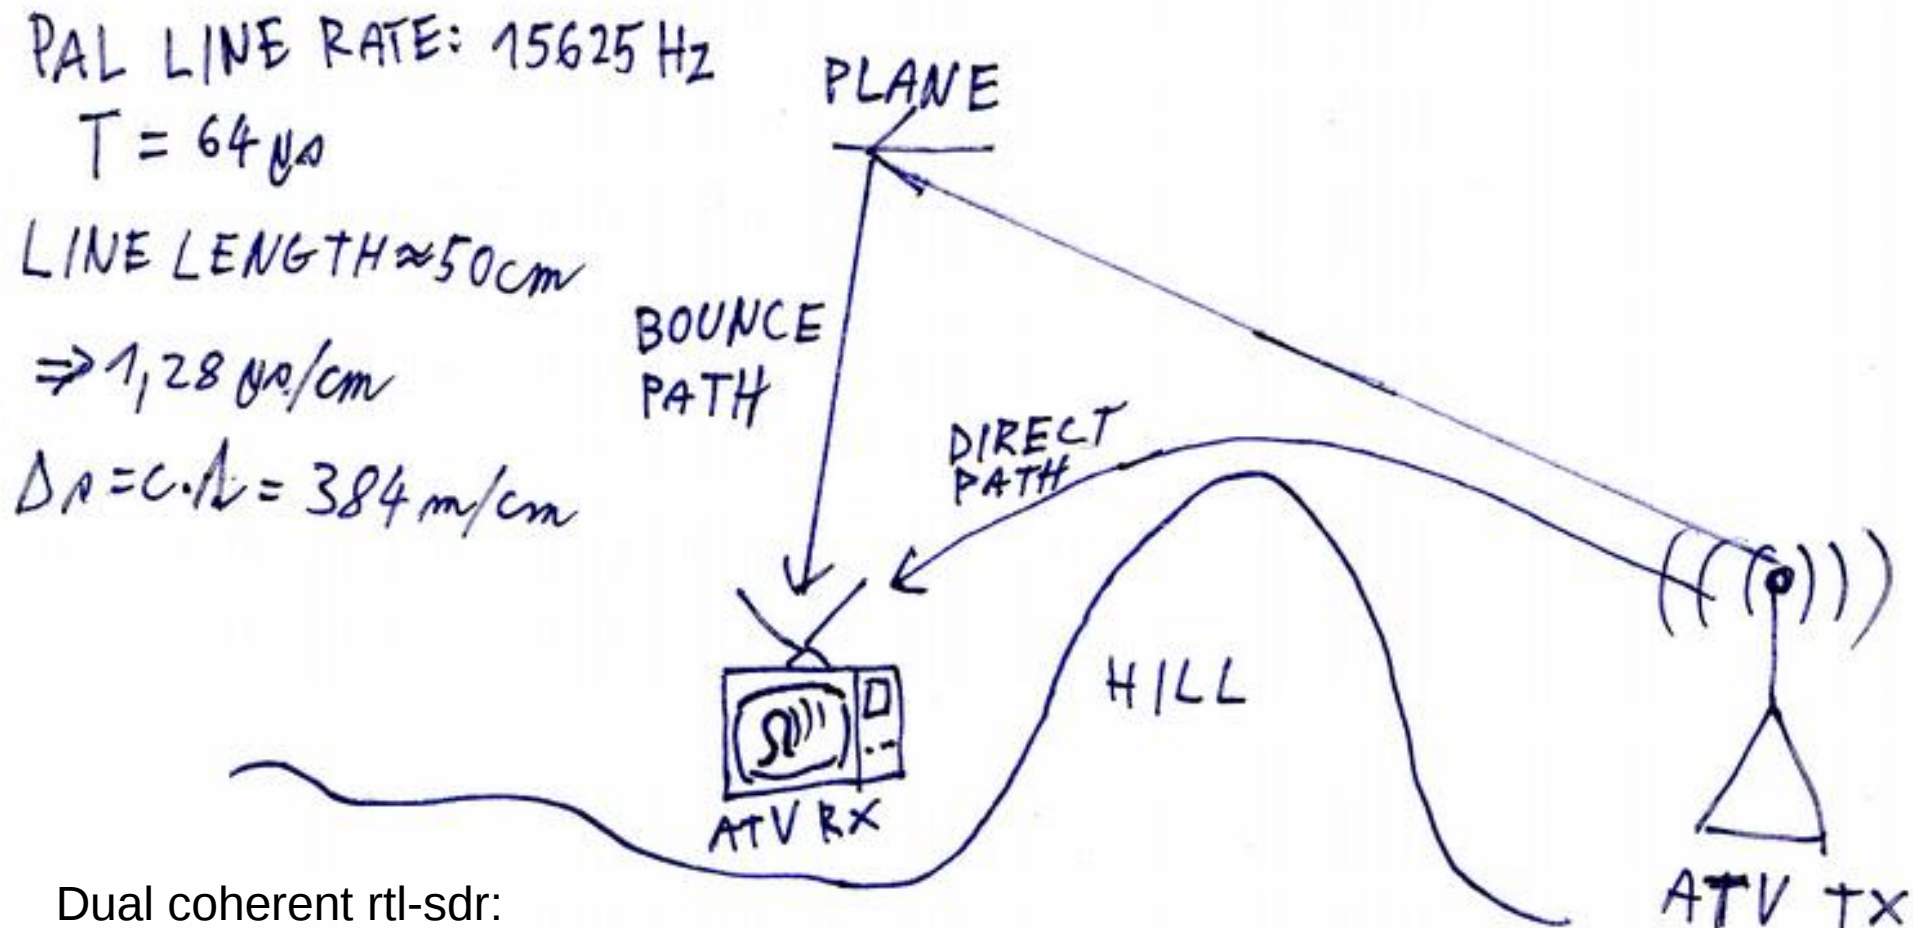 PAL LINE RATE: 15625 Hz
T = 64 µs
LINE LENGTH ≈ 50cm
⇒ 1,28 µs/cm
Δs = c·t = 384 m/cm
PLANE
BOUNCE
PATH
DIRECT
PATH
HILL
ATV RX
ATV TX
Dual coherent rtl-sdr: